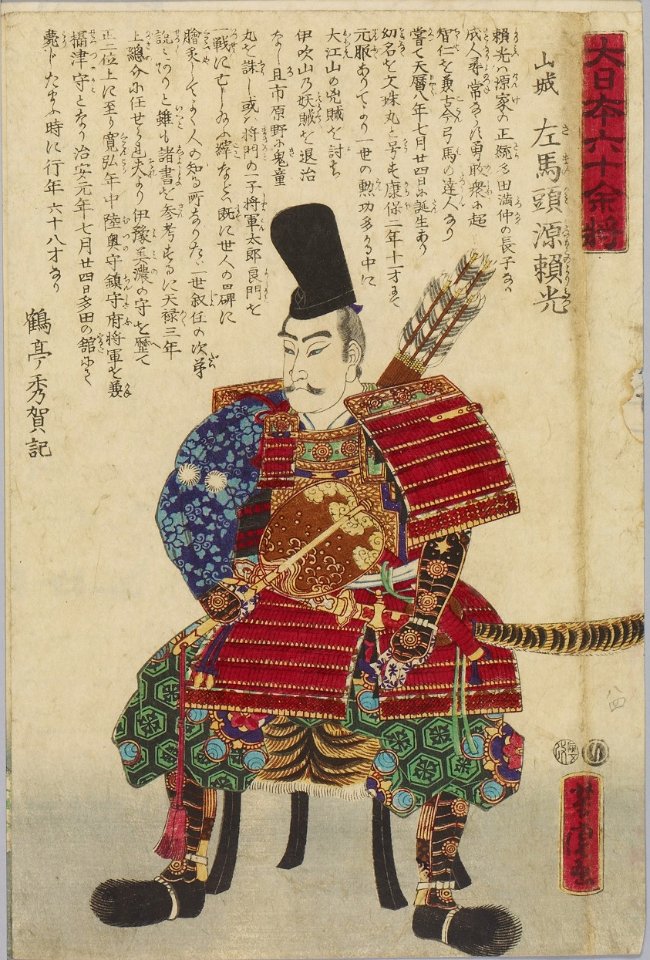 大日本六十余将
山城 左馬頭源頼光
頼光ハ源家の正統多田満仲の長子なり
成人尋常ならず勇敢衆に超
智仁を兼古今弓馬の達人なり
嘗て天暦八年七月廿四日に誕生あり
幼名を文珠丸と号す康保二年十一才にて
元服ありてより一世の勲功多かる中に
大江山の兇賊を討ち
伊吹山乃妖賊を退治
なし且市原野に鬼童
丸を誅し或ハ将門の一子将軍太郎良門を
一戦に亡し
既に世人の口碑に
膾炙してよく人の知る所なり
一世叙任の次第
説こ
と雖も諸書を参考するに天禄三年
上総介に任せ
夫より伊豫美濃の守を歴て
正四位上に至り寛弘年中陸奥守鎮守府将軍を兼
摂津守となり治安元年七月廿四日多田の舘に
薨じたまふ時に行年六十八才なり
鶴亭秀賀記
芳虎画